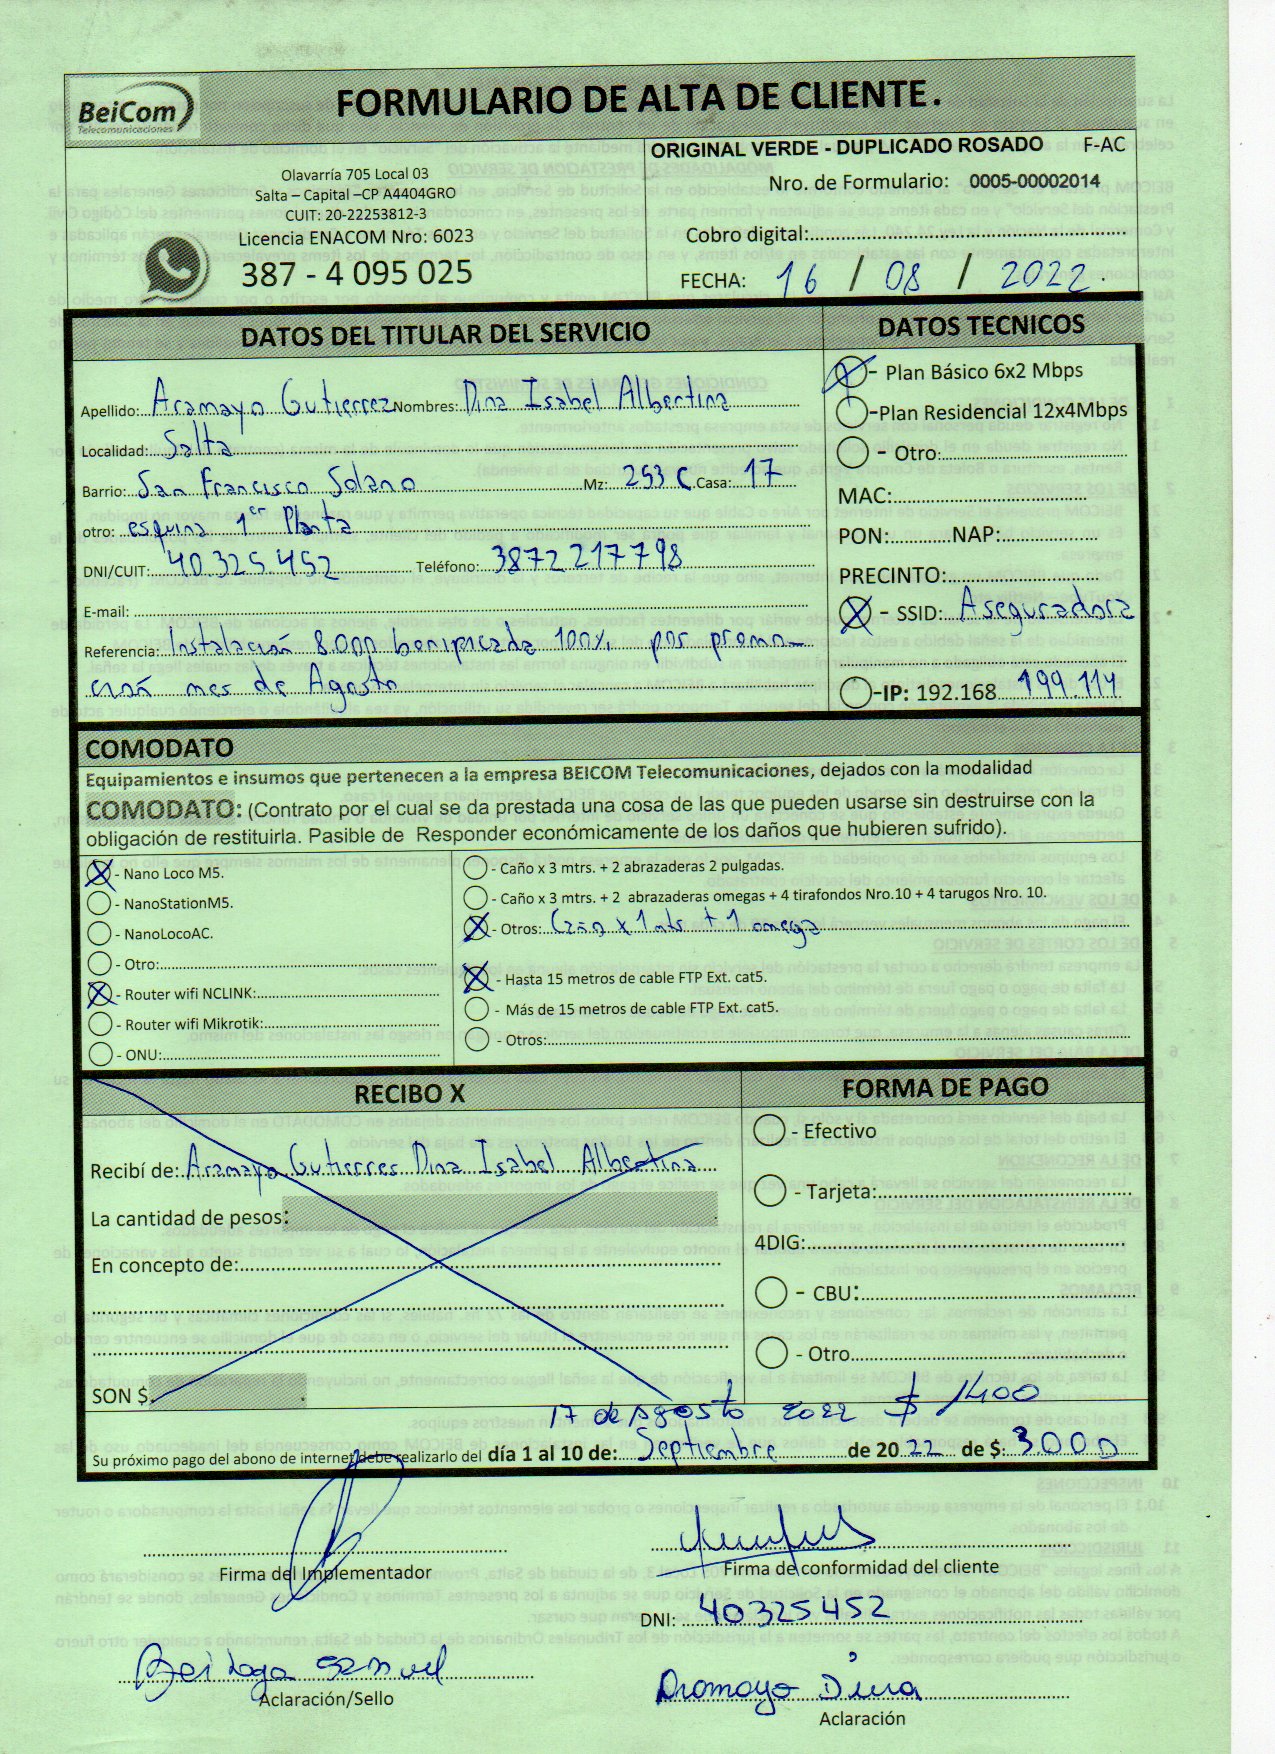 BeiCom
Telecomunicaciones
FORMULARIO DE ALTA DE CLIENTE.
ORIGINAL VERDE - DUPLICADO ROSADO F-AC
Olavarría 705 Local 03
Salta – Capital –CP A4404GRO
CUIT: 20-22253812-3
Licencia ENACOM Nro: 6023
387 - 4 095 025
Nro. de Formulario: 0005-00002014
Cobro digital:
FECHA: 16 / 08 / 2022.
DATOS DEL TITULAR DEL SERVICIO
Apellido: Aramayo Gutierrez Nombres: Dina Isabel Albertina
Localidad: Salta
Barrio: San Francisco Solano Mz: 293 C Casa: 17
otro: esquina 1er Planta
DNI/CUIT: 40325452 Teléfono: 3872217798
E-mail:
Referencia: Instalación 8.000 bonificada 100% por promo-
ción mes de Agosto
DATOS TECNICOS
- Plan Básico 6x2 Mbps
-Plan Residencial 12x4Mbps
- Otro:
MAC:
PON: NAP:
PRECINTO:
- SSID: Aseguradora
-IP: 192.168 199.114
COMODATO
Equipamientos e insumos que pertenecen a la empresa BEICOM Telecomunicaciones, dejados con la modalidad
COMODATO: (Contrato por el cual se da prestada una cosa de las que pueden usarse sin destruirse con la
obligación de restituirla. Pasible de Responder económicamente de los daños que hubieren sufrido).
- Nano Loco M5.
- NanoStationM5.
- NanoLocoAC.
- Otro:
- Router wifi NCLINK:
- Router wifi Mikrotik:
- ONU:
- Caño x 3 mtrs. + 2 abrazaderas 2 pulgadas.
- Caño x 3 mtrs. + 2 abrazaderas omegas + 4 tirafondos Nro.10 + 4 tarugos Nro. 10.
- Otros: Caño x 1 mts + 1 omega
- Hasta 15 metros de cable FTP Ext. cat5.
- Más de 15 metros de cable FTP Ext. cat5.
- Otros:
RECIBO X
Recibí de: Aramayo Gutierres Dina Isabel Albertina
La cantidad de pesos:
En concepto de:
SON $
FORMA DE PAGO
- Efectivo
- Tarjeta:
4DIG:
- CBU:
- Otro
17 de Agosto 2022 $ 1400
Su próximo pago del abono de internet debe realizarlo del día 1 al 10 de: Septiembre de 2022 de $: 3.000
Firma del Implementador
Firma de conformidad del cliente
DNI: 40325452
Aclaración/Sello
Aramayo Dina
Aclaración